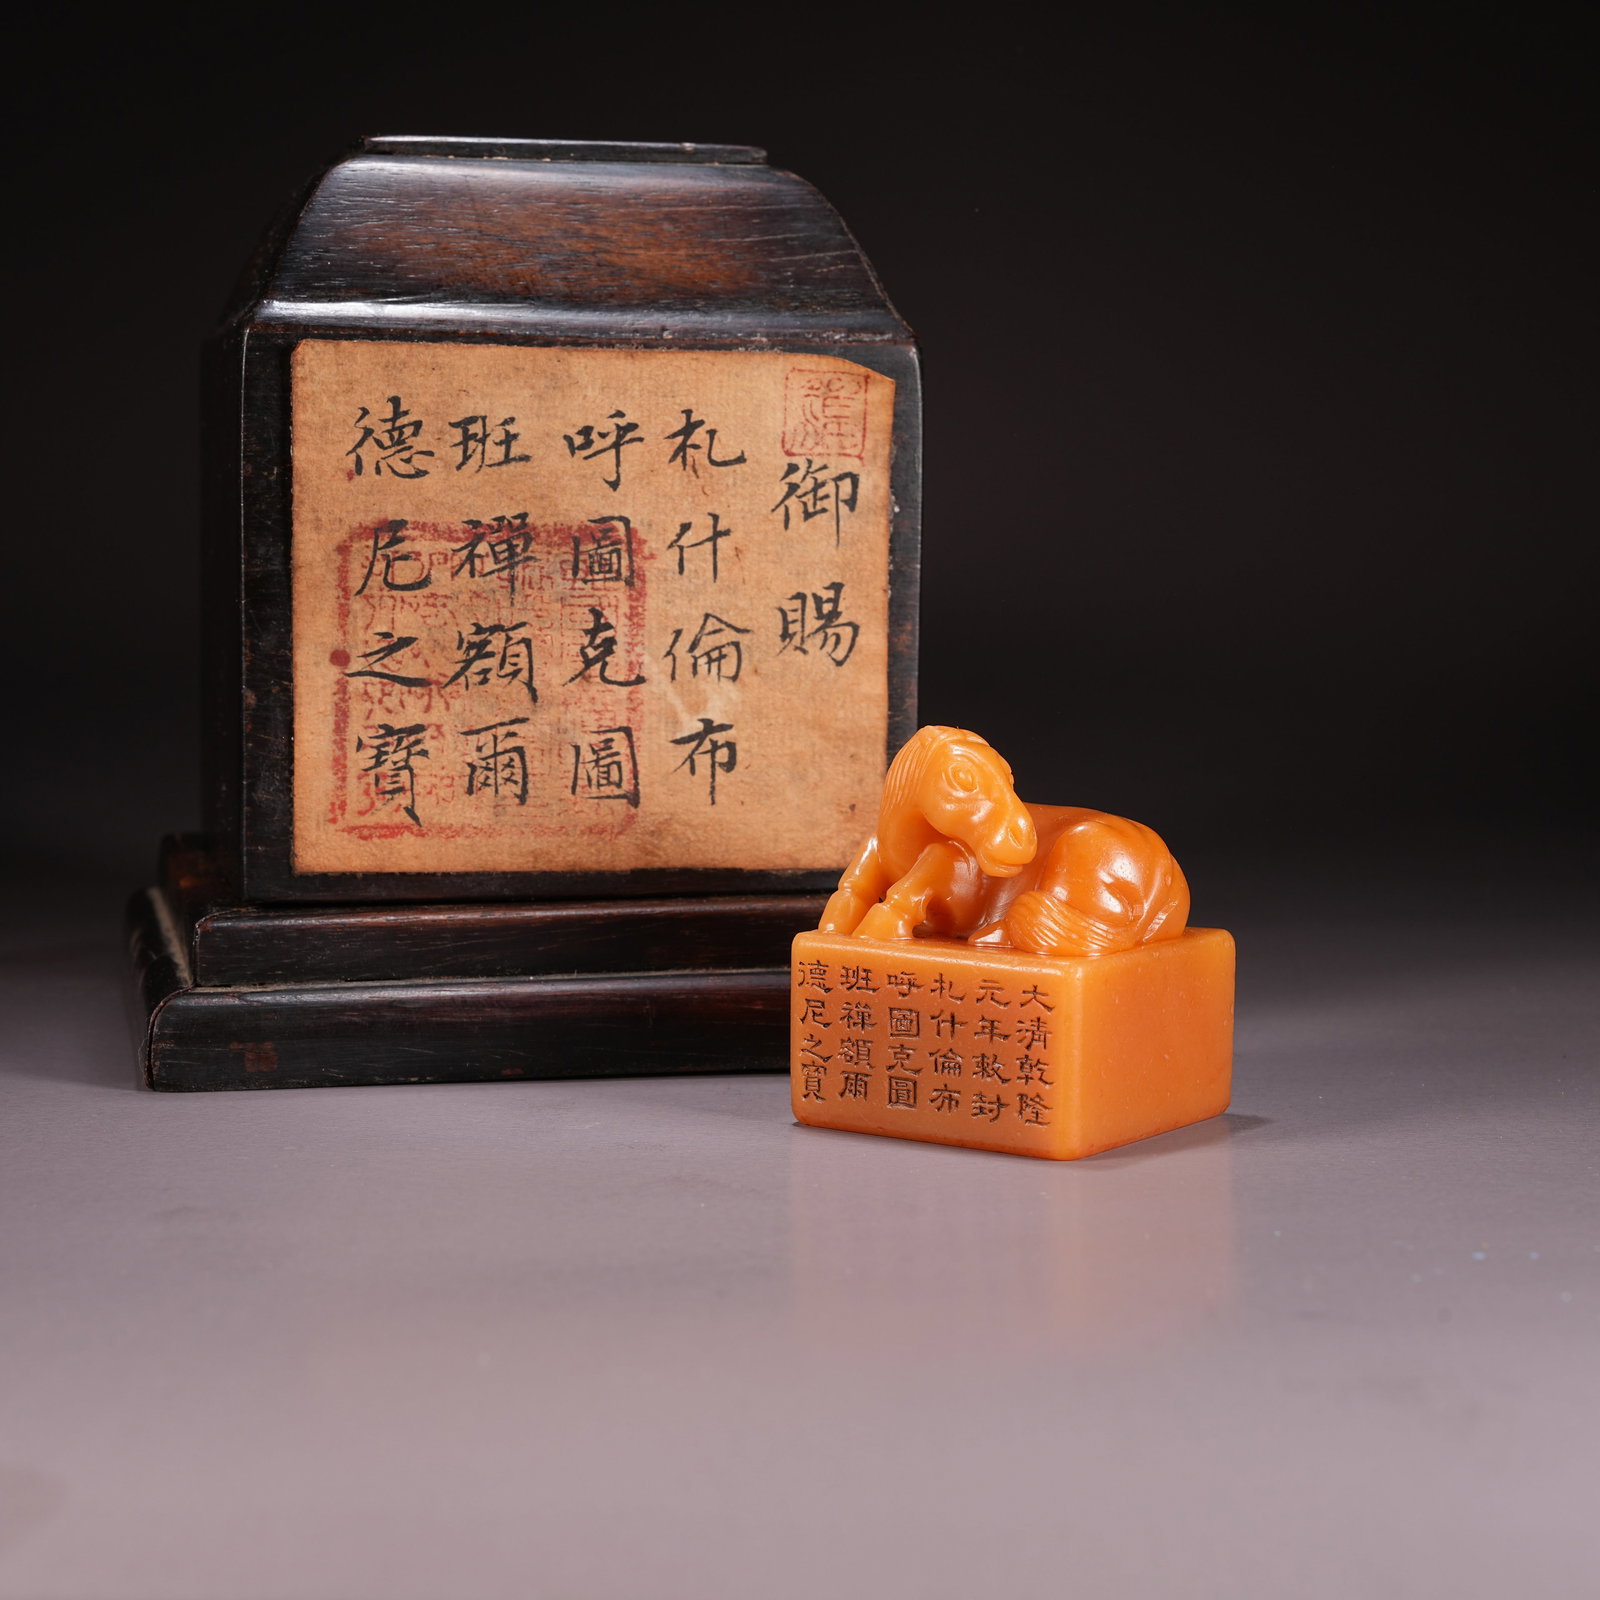 御賜
札什倫布
呼圖克圖
班禪額爾
德尼之寶
大清乾隆
元年敕封
札什倫布
呼圖克圖
班禪額爾
德尼之寶